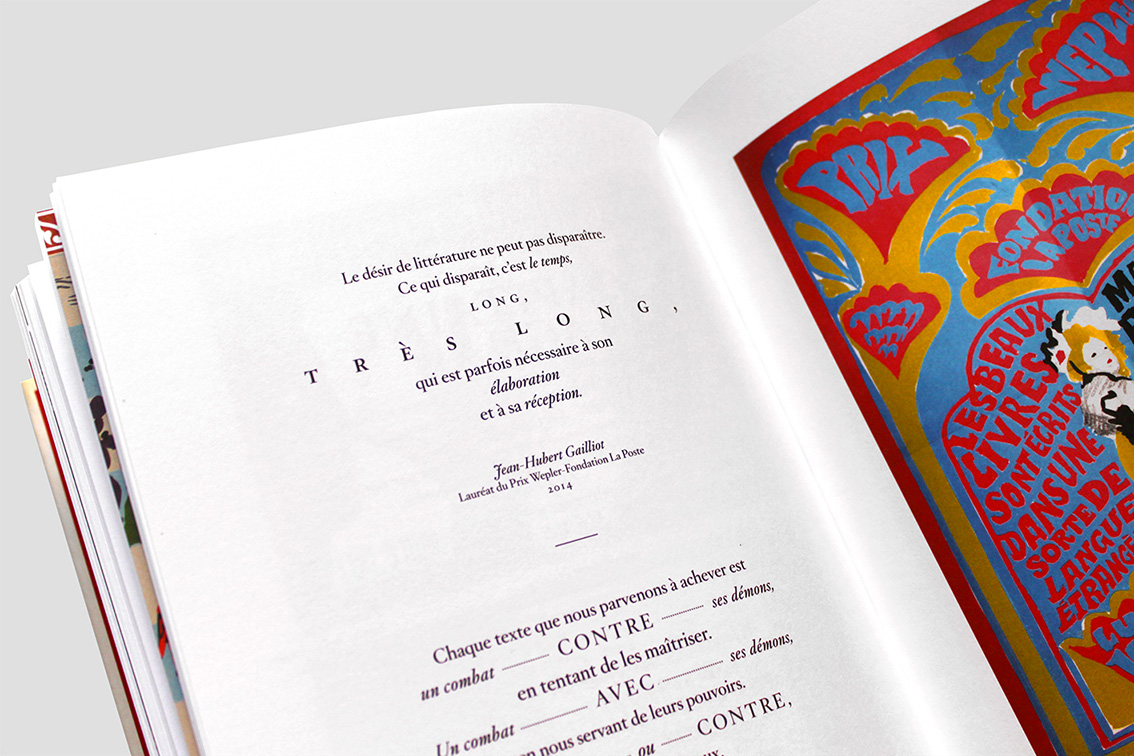 Le désir de littérature ne peut pas disparaître.
Ce qui disparaît, c'est le temps,
LONG,
TRÈS LONG,
qui est parfois nécessaire à son
élaboration
et à sa réception.
Jean-Hubert Gailliot
Lauréat du Prix Wepler-Fondation La Poste
2014
Chaque texte que nous parvenons à achever est
un combat CONTRE ses démons,
en tentant de les maîtriser.
Un combat AVEC ses démons,
en nous servant de leurs pouvoirs.
ou CONTRE,
PRIX
WEPL
FONDATION
LA POSTE
LES BEAUX
LIVRES
SONT ÉCRITS
DANS UNE
SORTE DE
LANGUE
ÉTRANGÈ